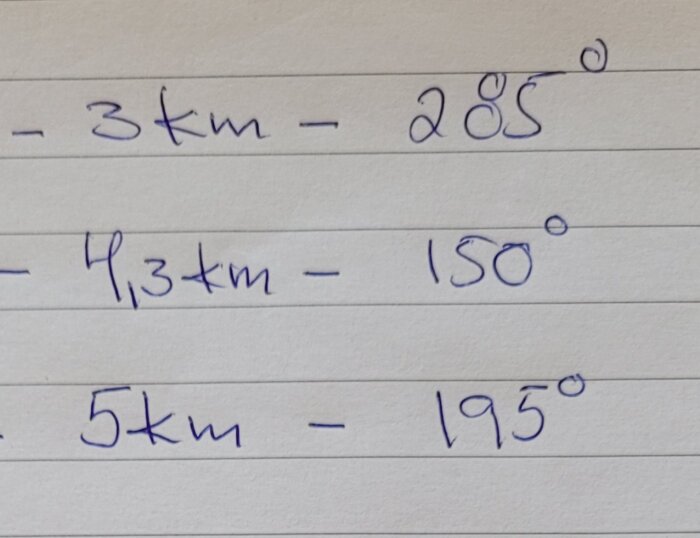 - 3 km - 285°
- 4,3 km - 150°
- 5 km - 195°